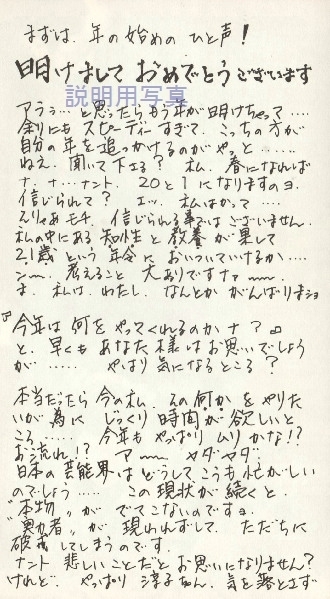 まずは、年の始めの ひと声!
明けまして おめでとうございます
説明用写真
アララ… と思ったらもう年が明けちゃって ‥‥
余りにも スピーディーすぎて、こっちの方が
自分の年を追っかけるのがやっと ‥‥‥
ねえ、聞いて下さる? 私、春になれば
ナ、ナ…ナント、20と1になりますのヨ、
信じられて? エッ、私はかって ‥‥
えりゃあモチ、信じられる事ではございません、
私の中にある 知性と教養が果して
21歳という年令に おいついていけるか ‥‥
ンー、考えること 大ありですナァ
ま、私は、わたし、なんとか がんばりまショ
今年は何をやってくれるのかナ? ∞
と、早くもあなた様はお思いでしょう
が ‥‥‥ やはり気になるところ?
本当だったら今の私、その何かをやりた
いが為に じっくり時間が欲しいと
ころ ‥‥‥ 今年もやっぱり ムリかな!?
お流れ!? アー ヤダヤダ
日本の芸能界はどうしてこうも忙がしい
のでしょう ‥‥‥ この現状が続くと、
"本物" が でてこないのですョ、
"勇者" が 現われずして、ただちに
破戒してしまうのです、
ナント 悲しいことだとお思いになりません?
けれど、やっぱり 淳子ちゃん、気を落とさず